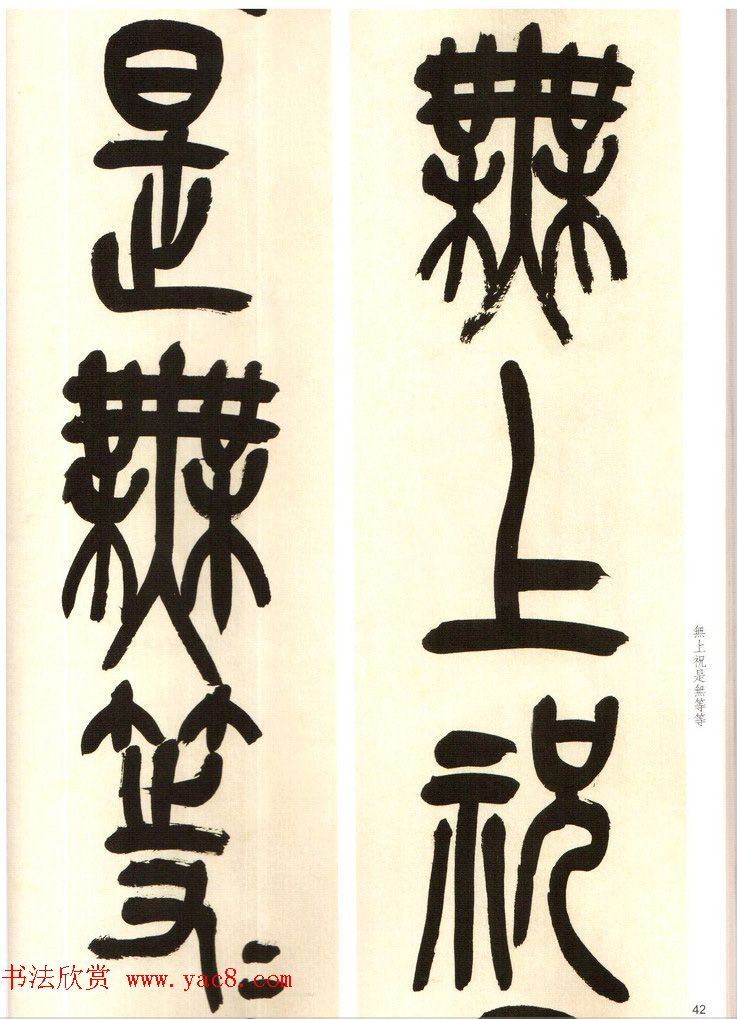 無上祝
是無等〻
無上祝是無等等
书法欣赏 www.yac8.com
42